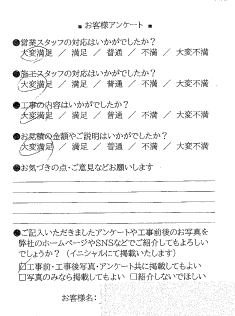 ■ お客様アンケート ■
●営業スタッフの対応はいかがでしたか？
大変満足 ／ 満足 ／ 普通 ／ 不満 ／ 大変不満
●施工スタッフの対応はいかがでしたか？
大変満足 ／ 満足 ／ 普通 ／ 不満 ／ 大変不満
●工事の内容はいかがでしたか？
大変満足 ／ 満足 ／ 普通 ／ 不満 ／ 大変不満
●お見積の金額やご説明はいかがでしたか？
大変満足 ／ 満足 ／ 普通 ／ 不満 ／ 大変不満
●お気づきの点・ご意見などお願いします
●ご記入いただきましたアンケートや工事前後のお写真を
弊社のホームページやSNSなどでご紹介してもよろしい
でしょうか？（イニシャルにて掲載いたします）
☑工事前・工事後写真・アンケート共に掲載してもよい
□写真のみなら掲載してもよい □紹介しないでほしい
お客様名：